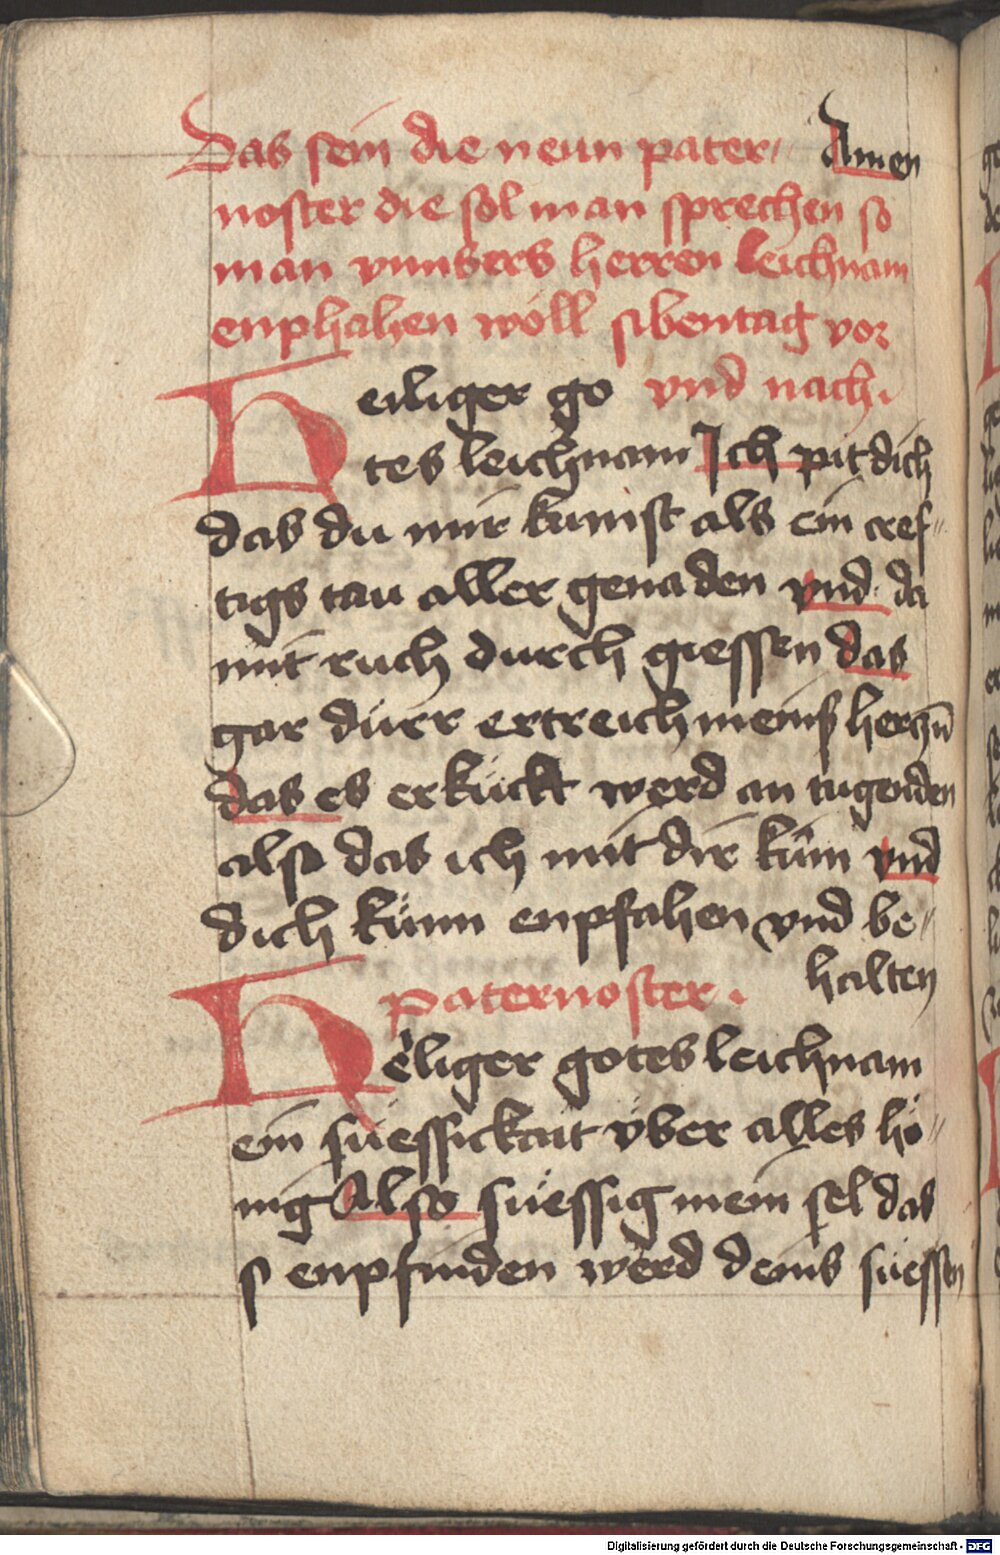 Amen
Das sein die neun pater
noster die sol man sprechen so
man vnnsers herren leichnam
enphahen wöll siben tag vor
vnd nach.
Heiliger go
tes leichnam Ich pit dich
das du mir kumst als ein cref-
tigs tau aller genaden vnd da
mit ruch durch giessen das
gar dürr ertreich meins hertzñ
das es erkückt werd an tugenden
also das ich mit dir küm vnd
dich künn enpfahen vnd be-
halten
paternoster.
Heiliger gotes leichnam
ein süessickait über alles hö-
nig Also süessig mein sel das
s enpfinden werd deins süessen
Digitalisierung gefördert durch die Deutsche Forschungsgemeinschaft - DFG